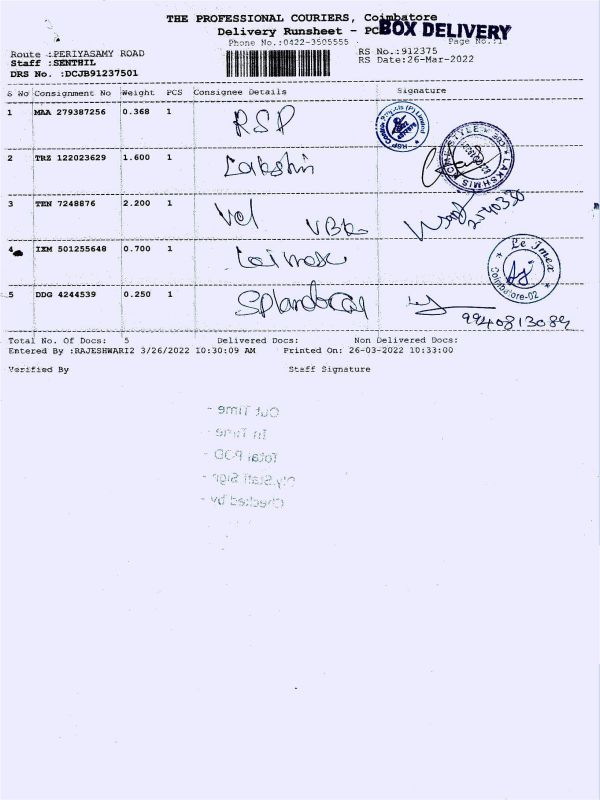 THE PROFESSIONAL COURIERS, Coimbatore
Delivery Runsheet - PCB
BOX DELIVERY
Phone No.:0422-3505555
Page No.:1
Route :PERIYASAMY ROAD
Staff :SENTHIL
DRS No. :DCJB91237501
RS No.:912375
RS Date:26-Mar-2022
S No Consignment No Weight PCS Consignee Details Signature
1 MAA 279387256 0.368 1 RSP
2 TRZ 122023629 1.600 1 Lakshmi
LAKSHMIS HOME STYLE
3 TEN 7248876 2.200 1 Vel VBK
2540330
4 IXM 501255648 0.700 1
Le Imex
Coimbatore-02
5 DDG 4244539 0.250 1
9940813089
Total No. Of Docs: 5 Delivered Docs: Non Delivered Docs:
Entered By :RAJESHWARI2 3/26/2022 10:30:09 AM Printed On: 26-03-2022 10:33:00
Verified By Staff Signature
Out Time -
In Time -
Total POD -
Dly.Staff Sign -
Checked by -